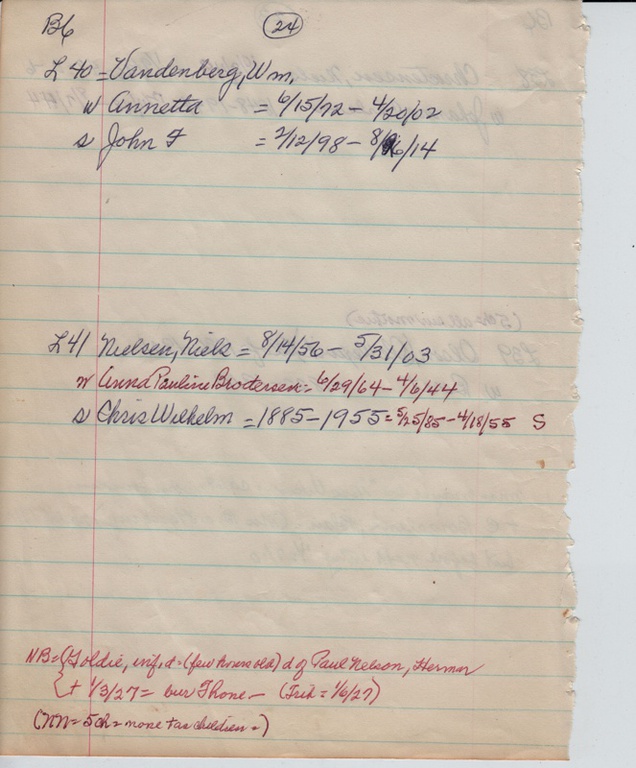 B6 24
L 40 = Vandenberg, Wm.
w Annetta = 6/15/72 – 4/20/02
s John F = 2/12/98 – 8/26/14
L 41 Nielsen, Niels = 8/14/56 – 5/31/03
w Anna Pauline Brodersen = 6/29/64 – 4/6/44
s Chris Wilhelm = 1885 – 1955 = 5/25/85 – 4/18/55 S
NB = (Goldie, inf, d = (few hours old) d of Paul Nelson, Herman
+ 1/3/27 = bur Thone – (Trib = 1/6/27)
(NN = 5 ch = none + as children =)